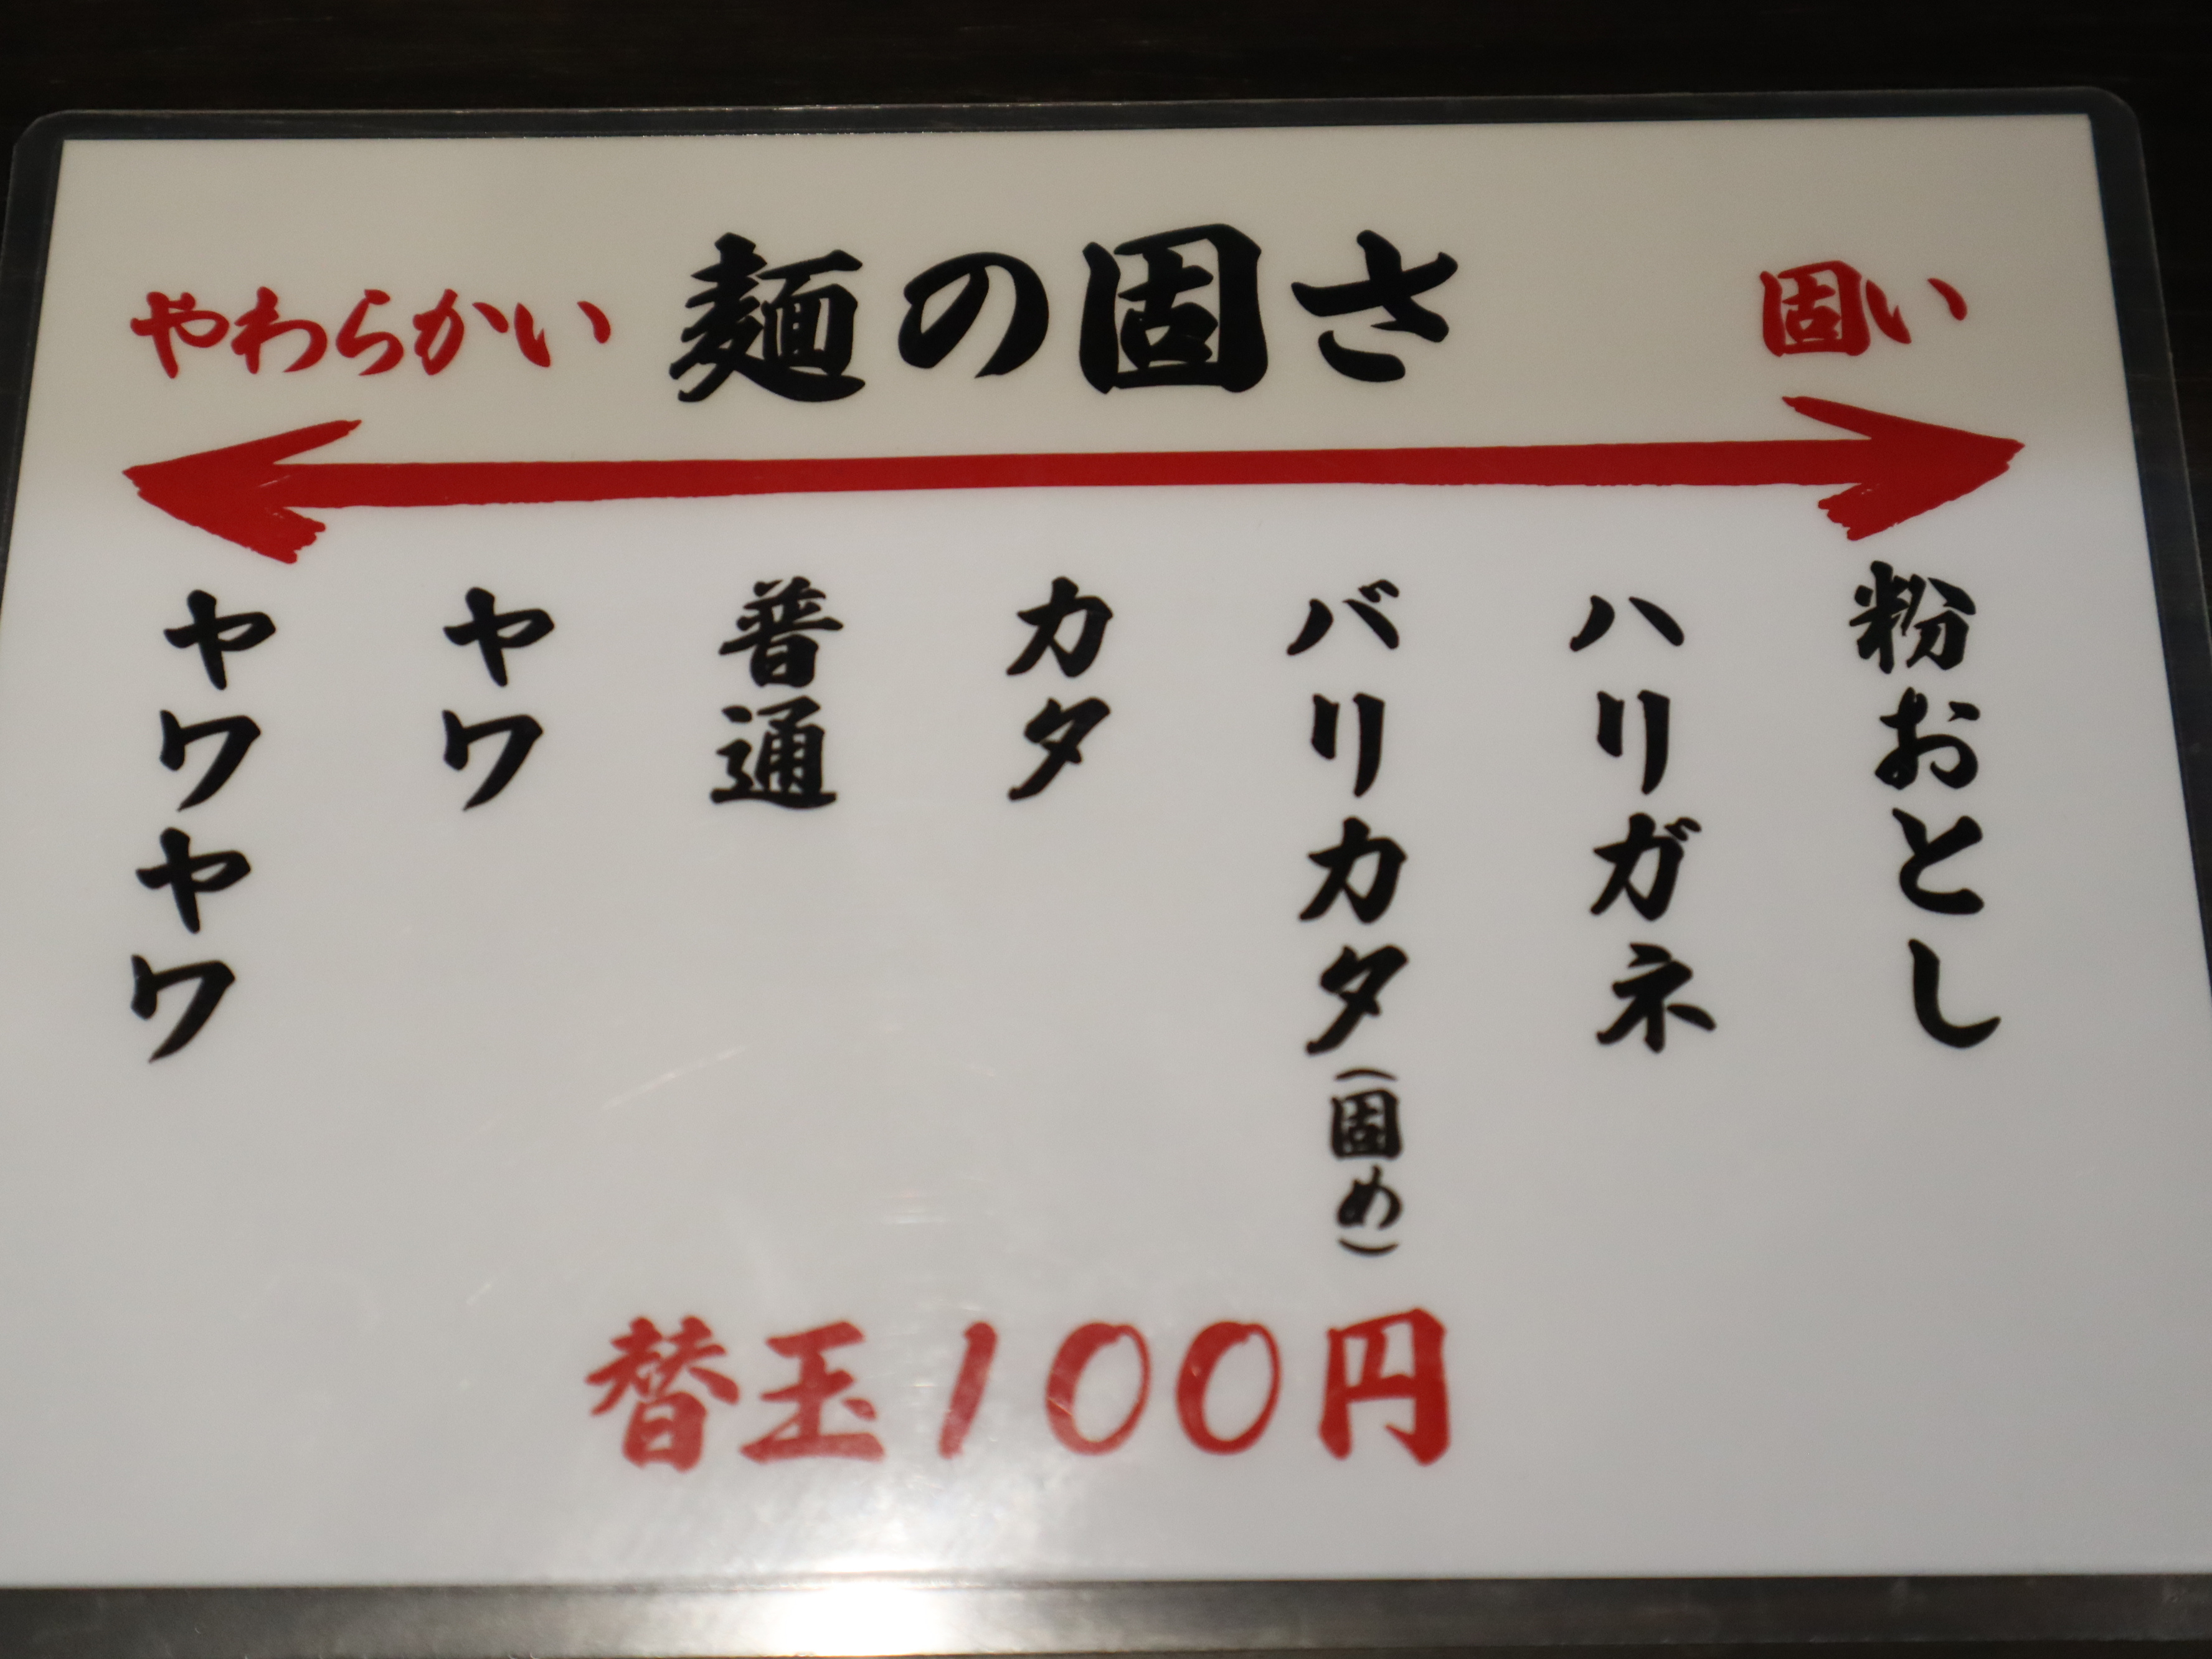 やわらかい 麺の固さ 固い
粉おとし
ハリガネ
バリカタ(固め)
カタ
普通
ヤワ
ヤワヤワ
替玉100円